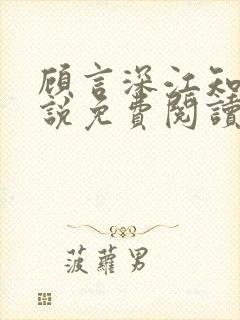 顾言深江知
說免費閱讀
菠蘿男